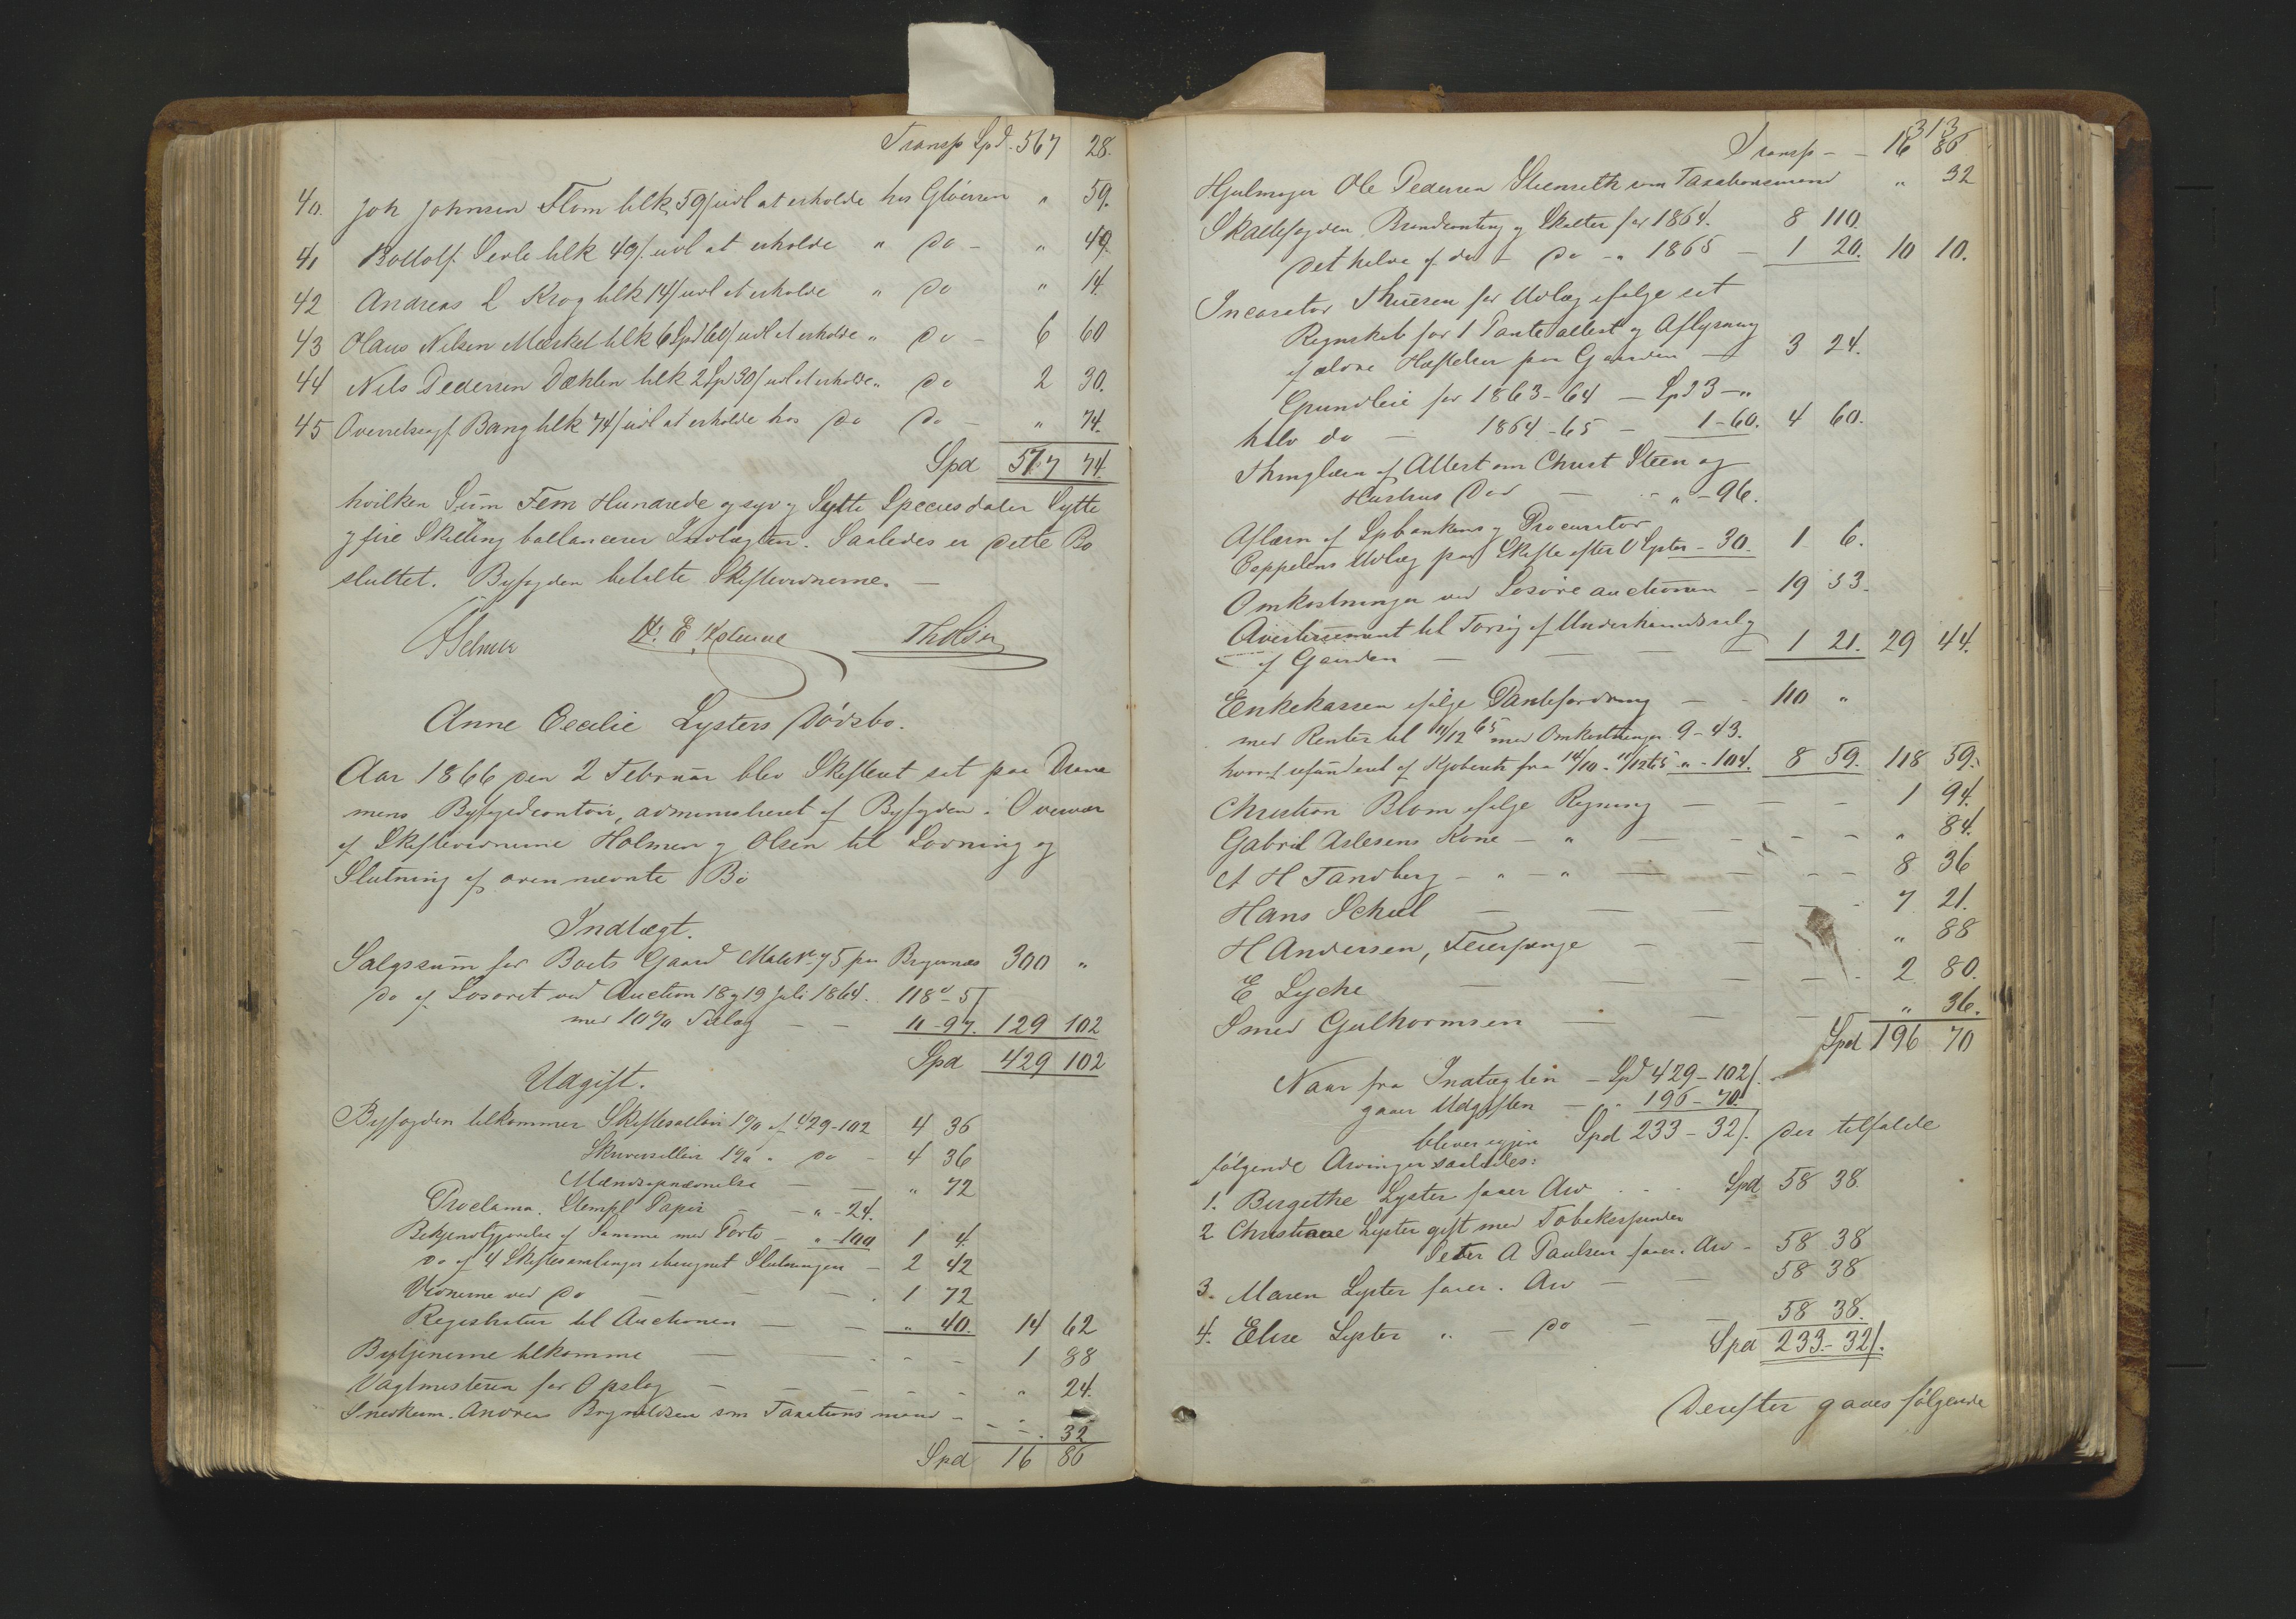 Transp Spd. 567 28.
40. Joh Johnsen Flom tilk 59/ udl at erholde hos Gløersen " 59.
41 Bottolf Serle tilk 49/. udl at erholde " Do - " 49.
42 Andreas L Krog tilk 14/ udl at erholde " Do " 14.
43 Olaus Nilsen Mærket tilk 6 Spd 60/ udl at erholde " Do - 6 60
44 Nils Pedersen Dæhlen tilk 2 Spd 30/ udl at erholde " Do 2 30.
45 Overretssagf. Bang tilk 74/ udl at erholde hos Do Do - " 74.
Spd 577 74.
hvilken Sum Fem Hundrede og syv og Sytte Speciesdaler Sytte
og fire Skilling ballancerer Indtægten. Saaledes er dette Bo
sluttet. Byfogden betalte Skiftevidnerne. —
Th Olsen
Anne Cecilie Lysters Dødsbo.
Aar 1866 den 2 Februar blev Skifteret sat paa Dram
mens Byfogedcontoir, administreret af Byfogden i Overvær
af Skiftevidnerne Holmen og Olsen til Lovning og
Slutning af ovennævnte Bo
Indtægt.
Salgssum for Boets Gaard Matr No 75 paa Bragernæs 300 "
Do af Løsøret ved Auction 18 og 19 Juli 1864. 118 - 5/
med 10% Tillæg — — 11 - 97. 129 102
Spd 429 102
Udgift.
Byfogden tilkommer Skiftesallair 1% af 429-102 4 36
Skriversallair 1% " Do - 4 36
Mændsopnævnelse — — " 72
Proclama. Stempl Papir - - " - 24.
Bekjendtgjørelse af Samme med Porto - " - 100 1 4.
Do af 4 Skiftesamlinger iberegnet Slutningen - 2 42
Vidnerne ved Do — — — 1 72
Registratur til Auctionen — — " 40. 14 62
Bytjenerne tilkomme — - - - 1 88
Vagtmesteren for Opslag - - - - - " 24.
Snedkerm. Andreas Brynildsen som Taxationsmand - - - 32
Spd 16 86
313
Transp - - 16 86
Hjulmager Ole Pedersen Steenseth som Taxationsmand " 32
Skattefogden, Brandconting og Skatter for 1864. 8 110.
Det halve af do - Do - " 1865 - 1 20. 10 10.
Incasator Thuesen for Udlæg ifølge sit
Regnskab for 1 Panteattest og Aflysning
af ældre Hæftelser paa Gaarden — 3 24.
Grundleie for 1863-64 — Spd 3 - "
halv do — 1864-65 — 1 - 60. 4 60.
Thinglæsn af Attest om Christ Steen og
Hustrus Død — - " - 96.
Aflæsn af Spbankens og Procurator
Cappelens Udlæg paa Skifte efter O Lyster - 30. 1 6.
Omkostninger ved Løsøreauctionen - 19 53.
Avertissement til Forsøg af Underhaandssalg
af Gaarden — — — 1 21. 29 44.
Enkekassen ifølge Pantefordring — - 110 "
med Renter til 11/12 65 med Omkostninger 9 - 43.
hvoraf refunderet af Kjøberen fra 14/10 - 11/12 65 " - 104. 8 59. 118 59.
Christian Blom ifølge Regning — — - 1 94.
Gabriel Aslesens Kone - " — - - - " 84.
A H Tandberg - " - " — — - - 8 36
Hans Schul — — — - - 7 21.
H Andersen, Feierpenge — — " 88
E Lyche — — — - 2 80.
Smed Gulhormsen — — — " 36.
Spd 196 70
Naar fra Indtægten - Spd 429 - 102/.
gaaer Udgiften - " 196 - 70.
bliver igjen Spd 233 - 32/. der tilfalde
følgende Arvinger saaledes:
1. Bergithe Lyster faaer Arv - - - Spd 58 38.
2 Christiane Lyster gift med Tobakkspinder
Peter A Paulsen faaer. Arv - 58 38
3. Maren Lyster faaer. Arv — — 58 38
4. Elise Lyster " — Do — — 58 38.
Spd 233 - 32/.
Derefter gaves følgende